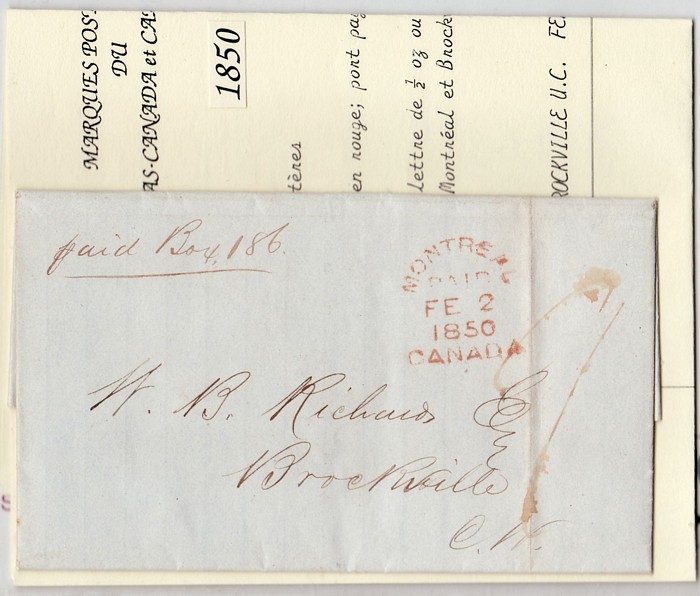 MARQUES POST
DU
AS-CANADA et CA
1850
tères
en rouge; port pa
lettre de ½ oz ou
Montréal et Brock
ROCKVILLE U.C. FE
paid Box 186.
MONTREAL
PAID
FE 2
1850
CANADA
W. B. Richards Esq
Brockville
C. W.